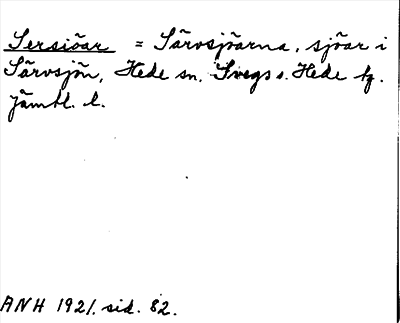 Sersiöar = Särvsjöarna, sjöar i
Särvsjön, Hede sn. Svegs o. Hede tg.
jämtl. l.
ANH 1921. sid. 82.